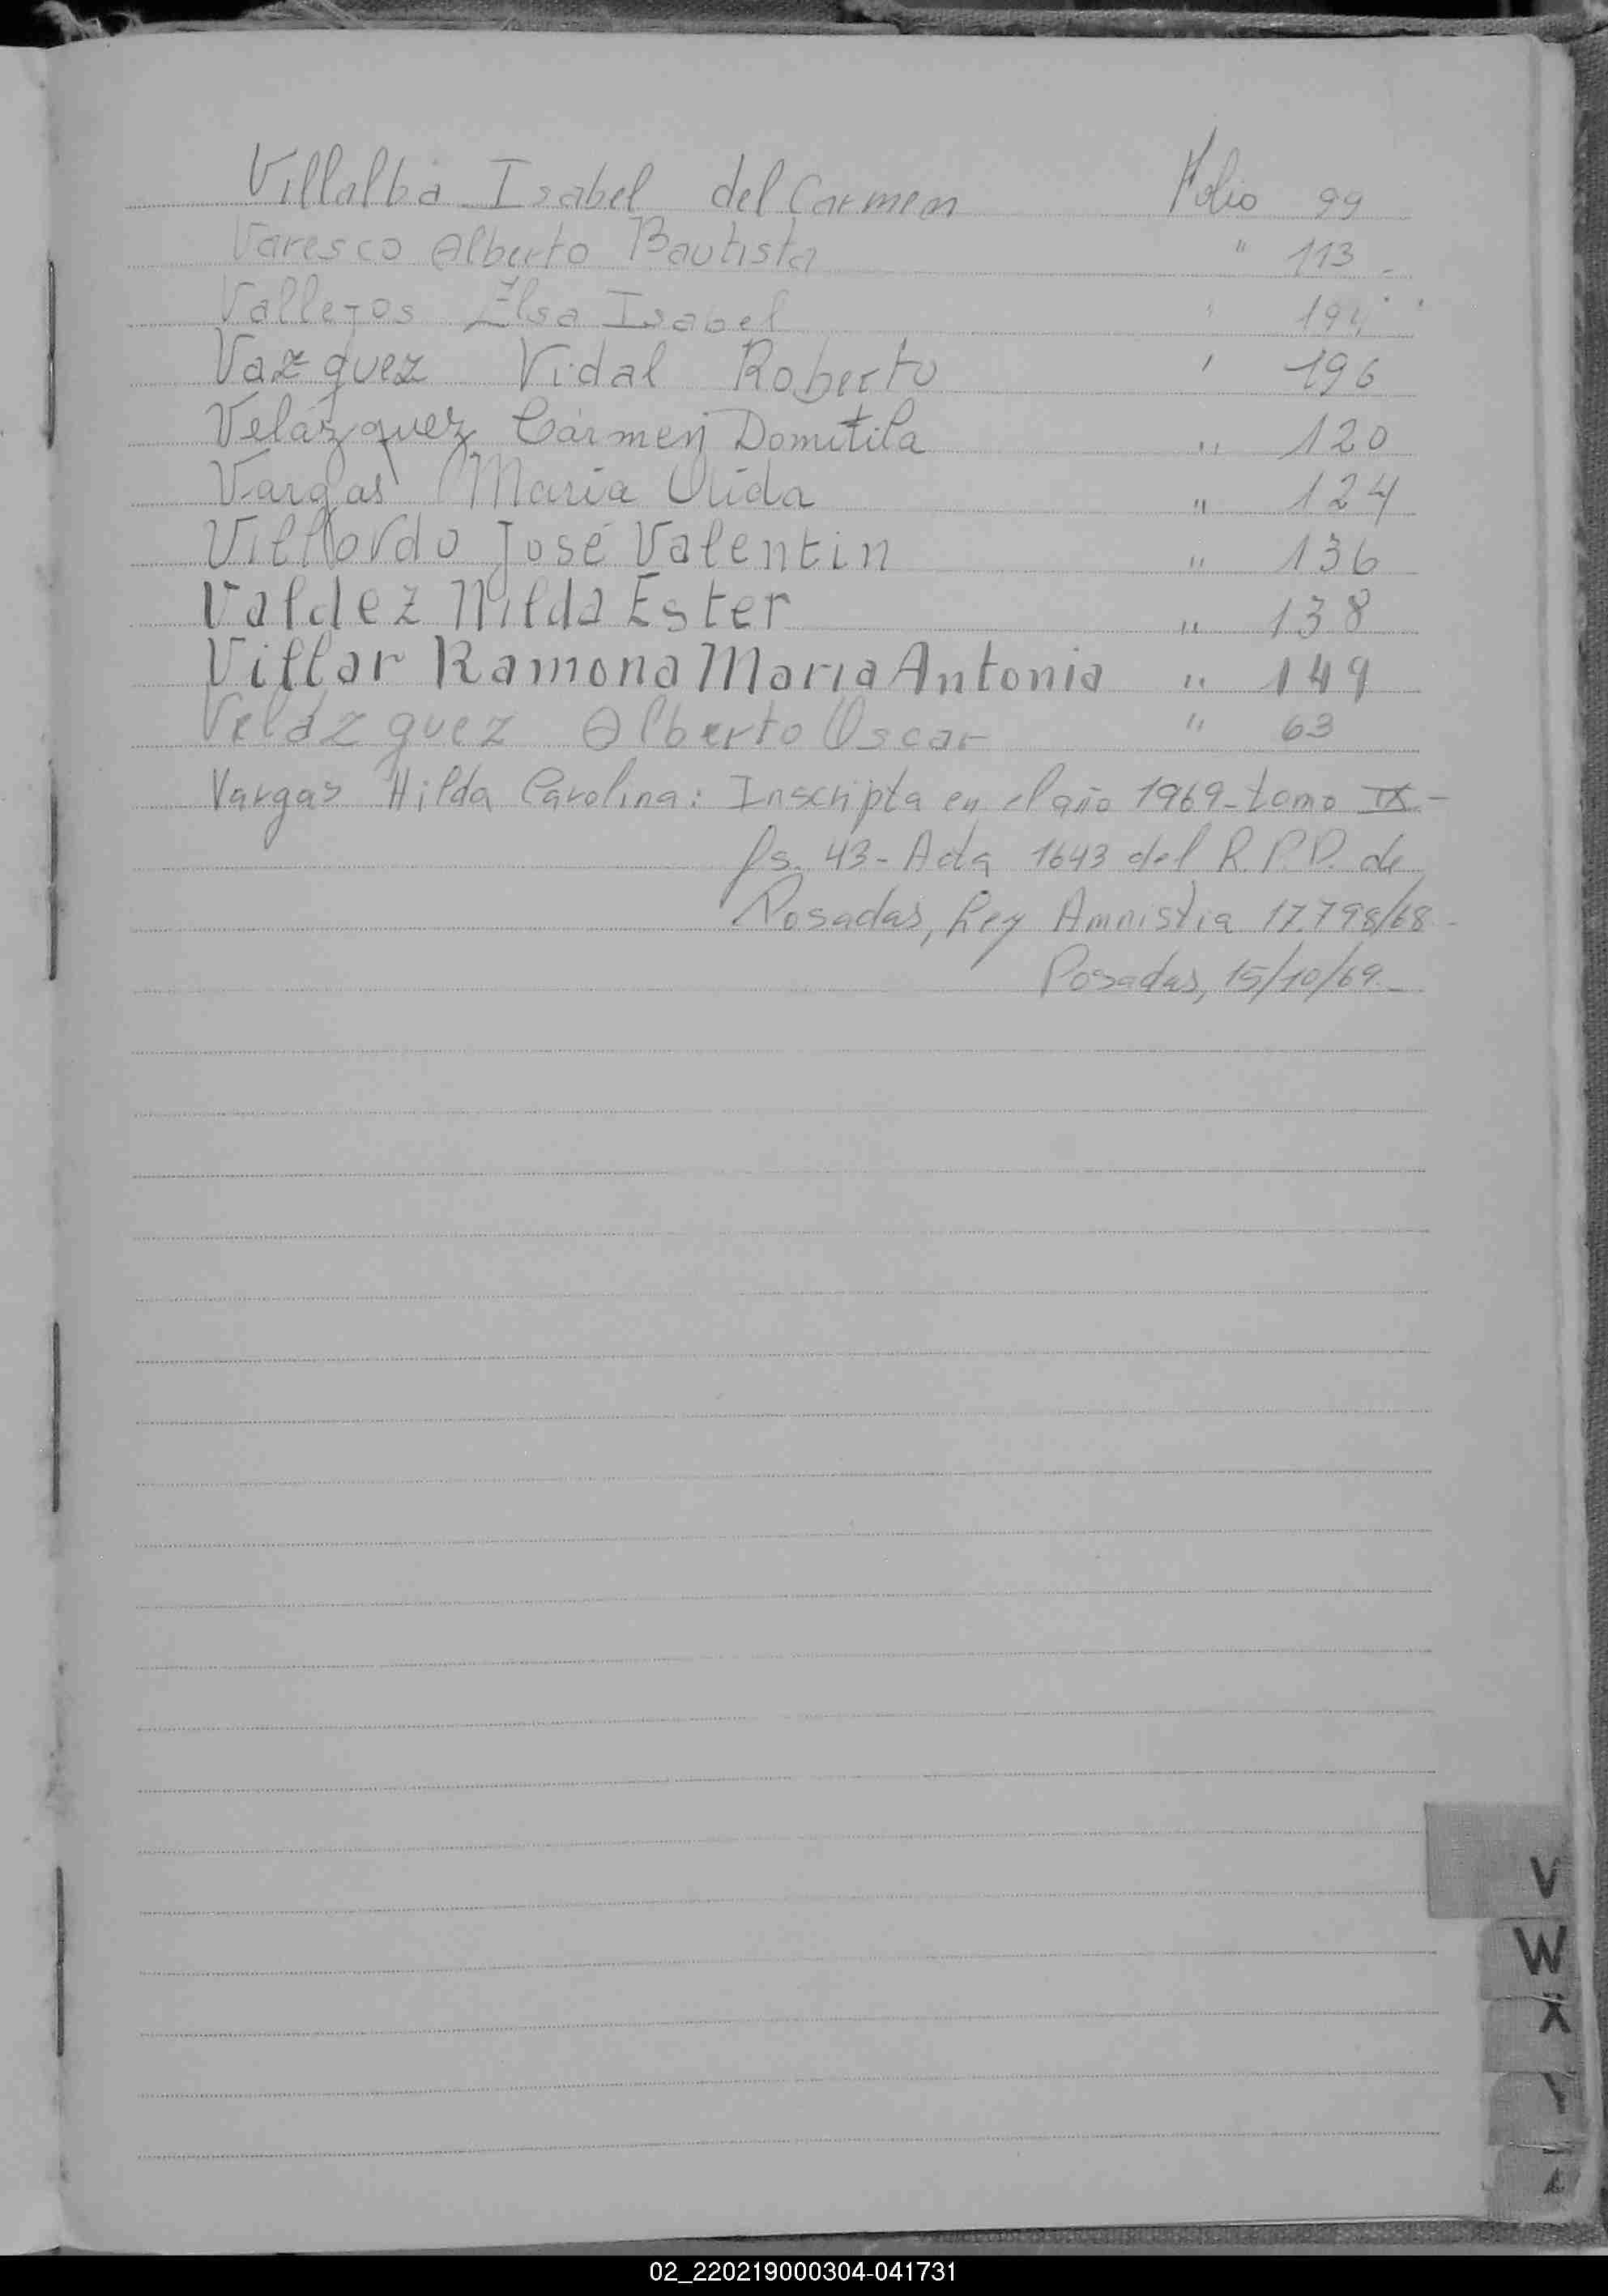 Villalba Isabel del Carmen Folio 99
Varesco Alberto Bautista " 113 -
Vallejos Elsa Isabel " 194
Vazquez Vidal Roberto " 196
Velázquez Cármen Domitila " 120
Vargas Maria " 124
José Valentin " 136
Valdez Nilda Ester " 138
Villar Ramona Maria Antonia " 149
Velázquez Alberto Oscar " 63
Vargas Hilda Carolina: Inscripta en el año 1969-tomo IX-
fs. 43- Acta 1643 del R.P.P. de
Posadas, Ley Amnistia 17.798/68-
Posadas, 15/10/69.-
V
W
X
02_220219000304-041731